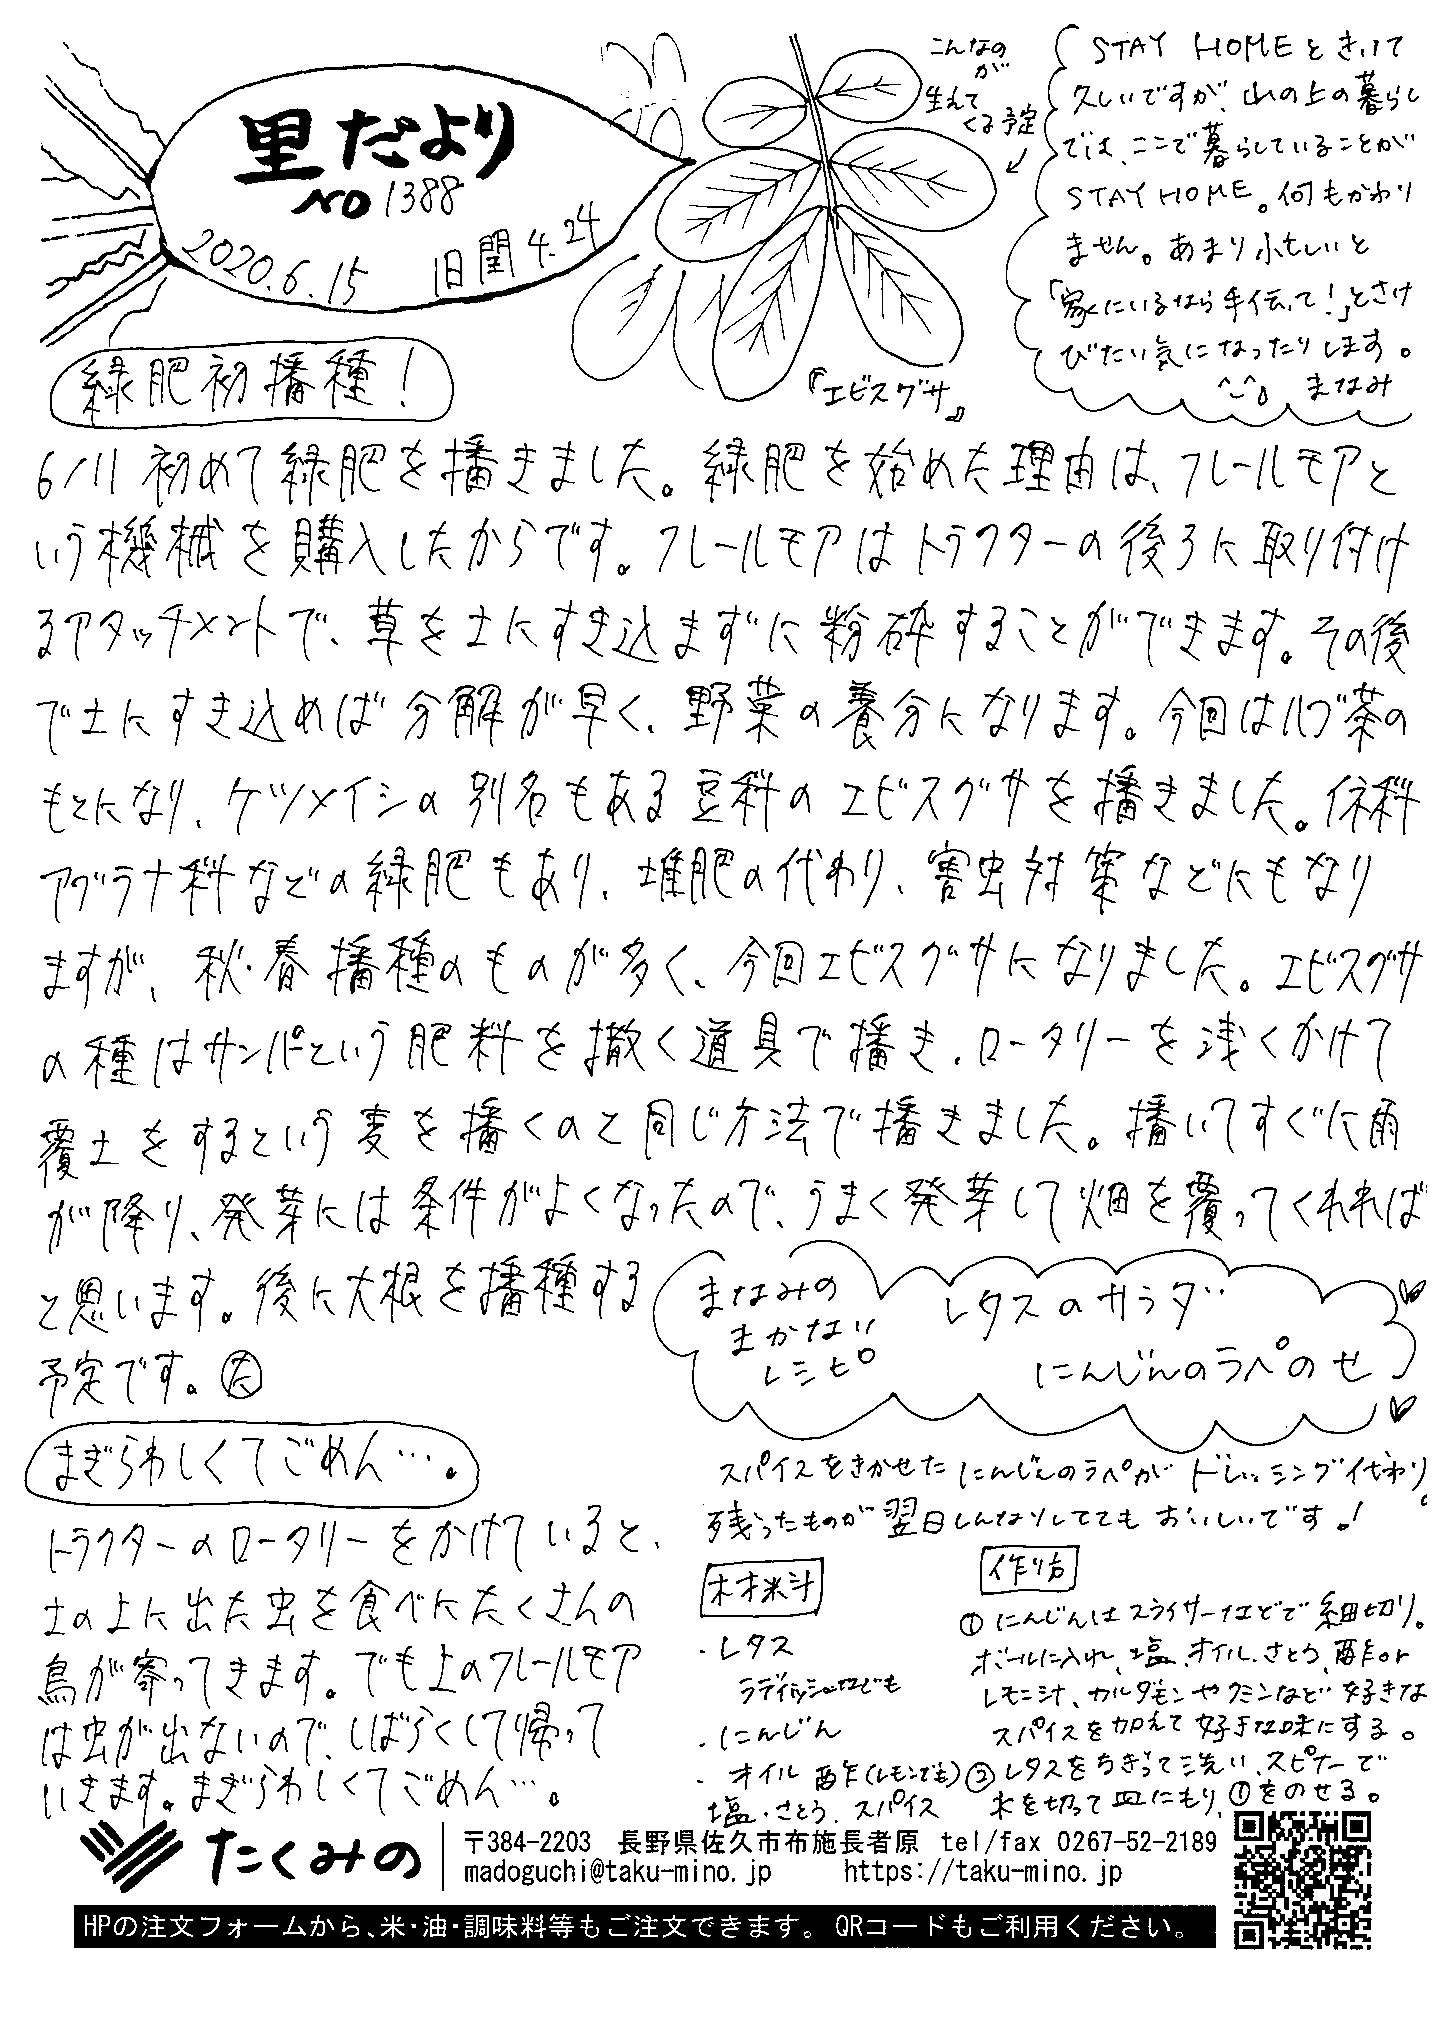 里だより
NO 1388
2020.6.15 旧閏4.24
こんなの
が
生えて
くる予定
『エビスグサ』
STAY HOMEときいて
久しいですが、山の上の暮らし
では、ここで暮らしていることが
STAY HOME。何もかわり
ません。あまり忙しいと
「家にいるなら手伝って!」とさけ
びたい気になったりします。
^-^; まなみ
緑肥初播種!
6/11 初めて緑肥を播きました。緑肥を始めた理由は、フレールモアと
いう機械を購入したからです。フレールモアはトラクターの後ろに取り付け
るアタッチメントで、草を土にすき込まずに粉砕することができます。その後
で土にすき込めば分解が早く、野菜の養分になります。今回はハブ茶の
もとになり、ケツメイシの別名もある豆科のエビスグサを播きました。イネ科
アブラナ科などの緑肥もあり、堆肥の代わり、害虫対策などにもなり
ますが、秋・春播種のものが多く、今回エビスグサになりました。エビスグサ
の種はサンパという肥料を撒く道具で播き、ロータリーを浅くかけて
覆土をするという麦を播くのと同じ方法で播きました。播いてすぐに雨
が降り、発芽には条件がよくなったので、うまく発芽して畑を覆ってくれれば
と思います。後に大根を播種する
予定です。㋟
まぎらわしくてごめん…。
トラクターのロータリーをかけていると、
土の上に出た虫を食べにたくさんの
鳥が寄ってきます。でも上のフレールモア
は虫が出ないので、しばらくして帰って
いきます。まぎらわしくてごめん…。
まなみの
まかない
レシピ
レタスのサラダ
にんじんのラペのせ
スパイスをきかせたにんじんのラペがドレッシング代わり。
残ったものが翌日しんなりしてても おいしいです!
材料
・レタス
ラディッシュなども
・にんじん
・オイル 酢(レモンでも)
塩・さとう、スパイス
作り方
① にんじんはスライサーなどで細切り。
ボールに入れ、塩、オイル、さとう、酢or
レモン汁、カルダモンやクミンなど好きな
スパイスを加えて好きな味にする。
② レタスをちぎって洗い、スピナーで
水を切って皿にもり、①をのせる。
たくみの
〒384-2203 長野県佐久市布施長者原 tel/fax 0267-52-2189
madoguchi@taku-mino.jp https://taku-mino.jp
HPの注文フォームから、米・油・調味料等もご注文できます。 QRコードもご利用ください。